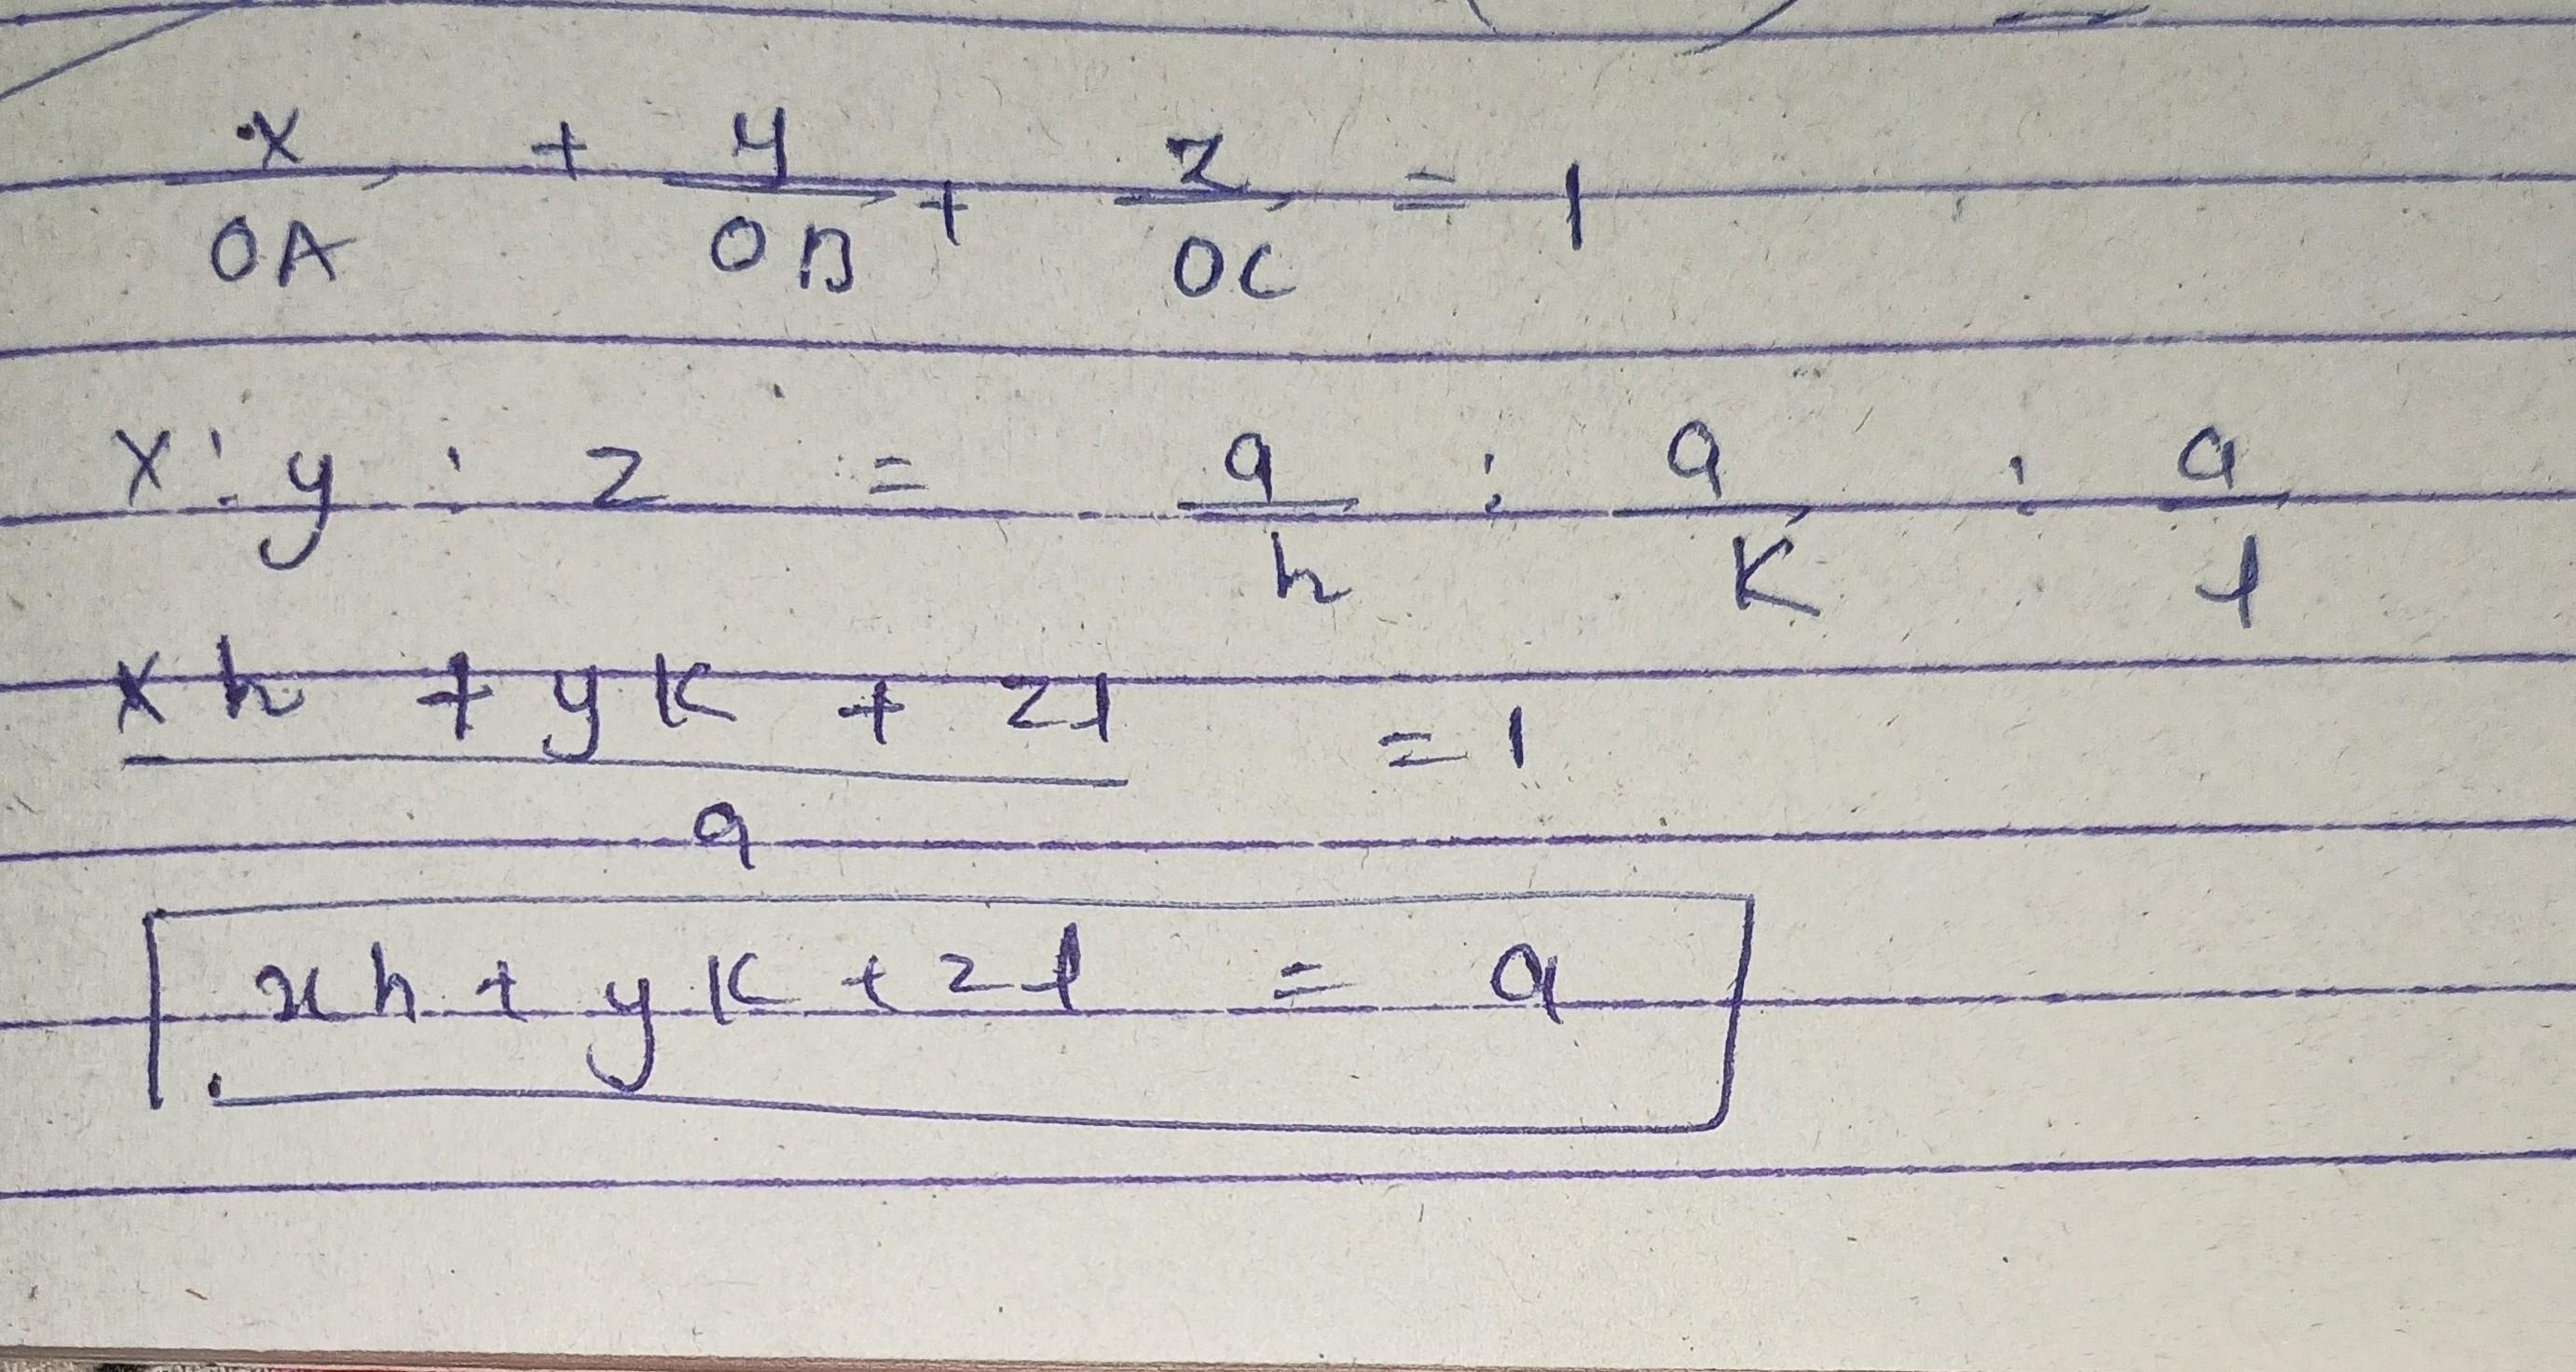 x/OA + y/OB + z/OC = 1
x : y : z = a/h : a/K : a/l
xh + yK + zl / a = 1
xh + yK + zl = a